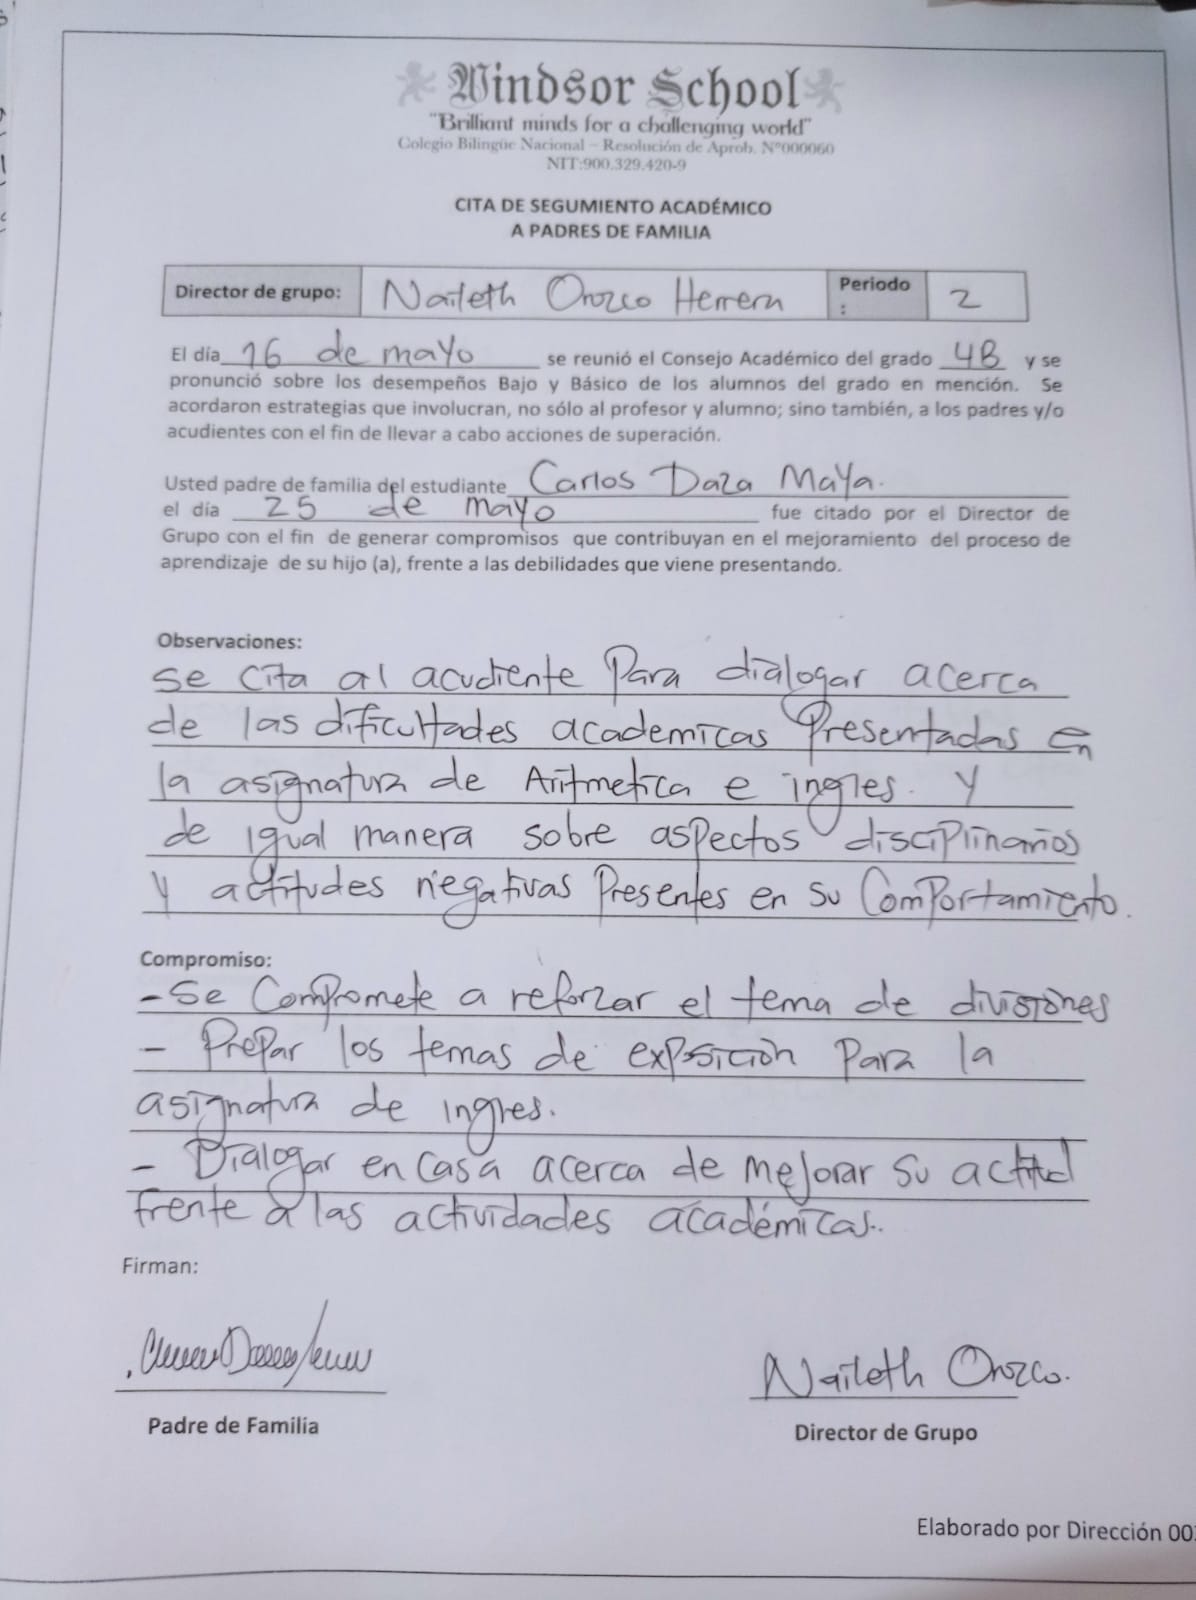 Windsor School
"Brilliant minds for a challenging world"
Colegio Bilingüe Nacional – Resolución de Aprob. N°000060
NIT:900.329.420-9
CITA DE SEGUMIENTO ACADÉMICO
A PADRES DE FAMILIA
Director de grupo: Naileth Orozco Herrera Periodo : 2
El día 16 de mayo se reunió el Consejo Académico del grado 4B y se
pronunció sobre los desempeños Bajo y Básico de los alumnos del grado en mención. Se
acordaron estrategias que involucran, no sólo al profesor y alumno; sino también, a los padres y/o
acudientes con el fin de llevar a cabo acciones de superación.
Usted padre de familia del estudiante Carlos Daza Maya.
el día 25 de mayo fue citado por el Director de
Grupo con el fin de generar compromisos que contribuyan en el mejoramiento del proceso de
aprendizaje de su hijo (a), frente a las debilidades que viene presentando.
Observaciones:
se cita al acudiente Para dialogar acerca
de las dificultades academicas Presentadas en
la asignatura de Aritmetica e ingles. y
de igual manera sobre aspectos disciplinarios
y actitudes negativas Presentes en su Comportamiento.
Compromiso:
- Se Compromete a reforzar el tema de divisiones
- Prepar los temas de exposición Para la
asignatura de ingres.
- Dialogar en casa acerca de mejorar su actitud
frente a las actividades académicas.
Firman:
Padre de Familia
Naileth Orozco.
Director de Grupo
Elaborado por Dirección 00